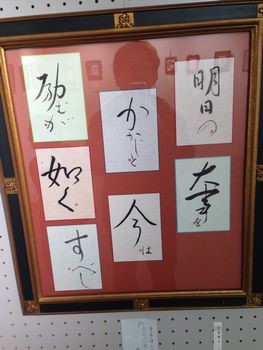 明日の
大事を
かかじと
今は
励むが
如く
すべし